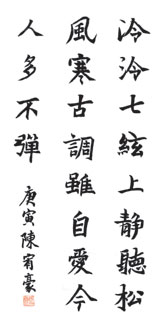 泠泠七絃上静聽松
風寒古調雖自愛今
人多不彈
庚寅陳宥豪